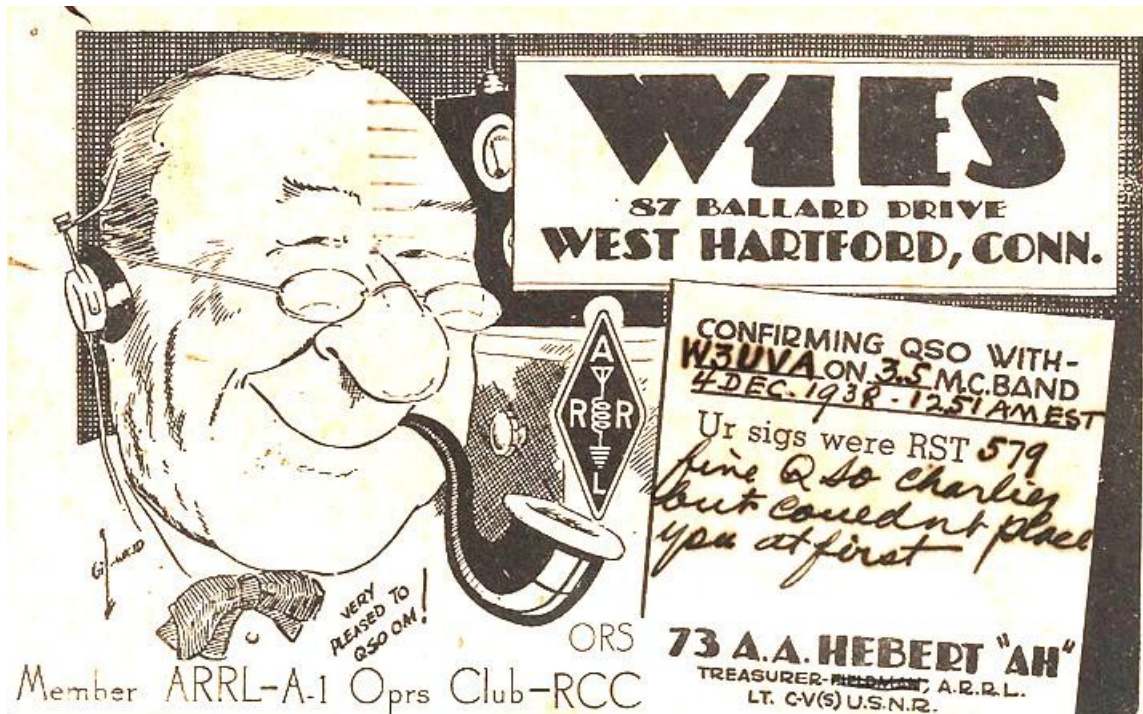 W1ES
87 BALLARD DRIVE
WEST HARTFORD, CONN.
CONFIRMING QSO WITH-
W3UVA ON 3.5 M.C. BAND
4 DEC. 1938 - 1251 AM EST
Ur sigs were RST 579
fine QSO Charlie
but couldnt place
you at first
A
R R
L
VERY
PLEASED TO
QSO OM!
ORS
Member ARRL-A-1 Oprs Club-RCC
73 A.A. HEBERT "AH"
TREASURER-FIELDMAN, A.R.R.L.
LT. C-V(S) U.S.N.R.